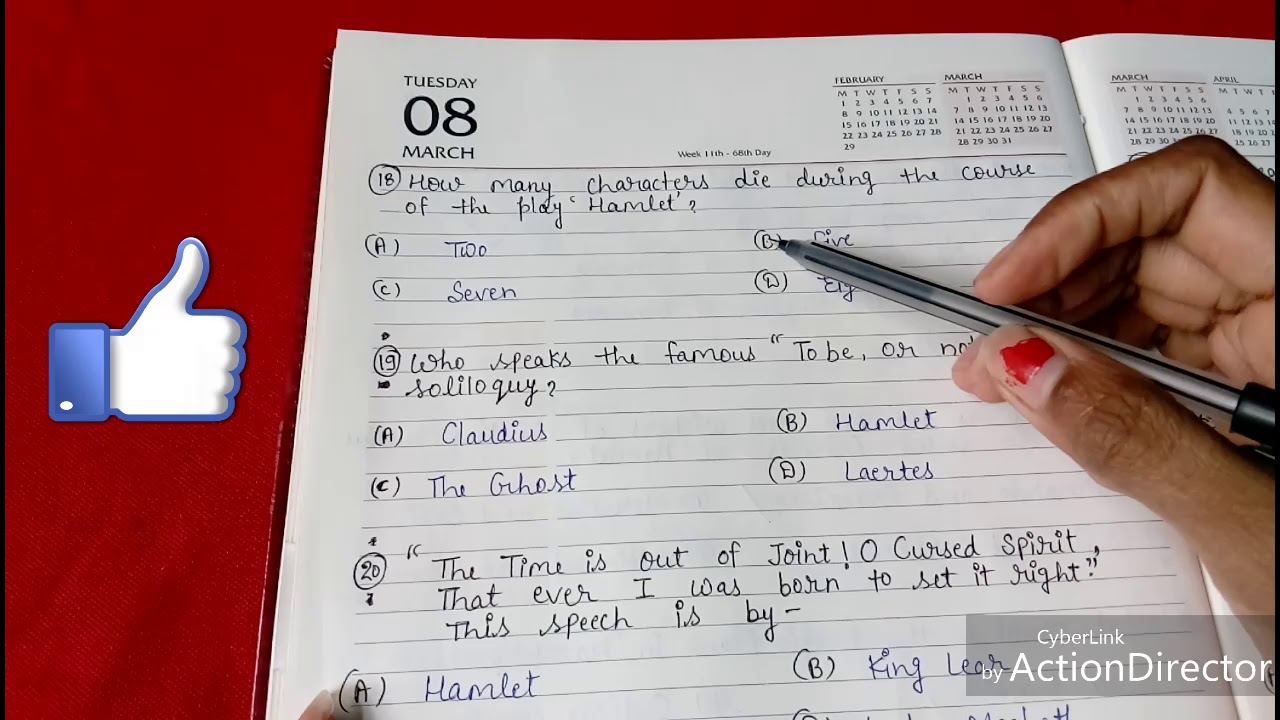 TUESDAY
08
MARCH
Week 11th - 68th Day
FEBRUARY
M T W T F S S
1 2 3 4 5 6 7
8 9 10 11 12 13 14
15 16 17 18 19 20 21
22 23 24 25 26 27 28
29
MARCH
M T W T F S S
1 2 3 4 5 6
7 8 9 10 11 12 13
14 15 16 17 18 19 20
21 22 23 24 25 26 27
28 29 30 31
MARCH
M T W T F S S
1 2 3 4 5 6
7 8 9 10 11 12 13
14 15 16 17 18 19 20
21 22 23 24 25 26 27
28 29 30 31
APRIL
M T W T
4 5 6 7
11 12 13
18 19 20
25 26 27
(18) How many characters die during the course
of the play 'Hamlet'?
(A) Two
(B) Five
(C) Seven
(D)
(19) Who speaks the famous "To be, or
soliloquy?
(A) Claudius
(B) Hamlet
(C) The Ghost
(D) Laertes
(20) "The Time is out of Joint! O Cursed Spirit,
That ever I was born to set it right."
This speech is by -
(A) Hamlet
(B) King Lear
CyberLink
by ActionDirector